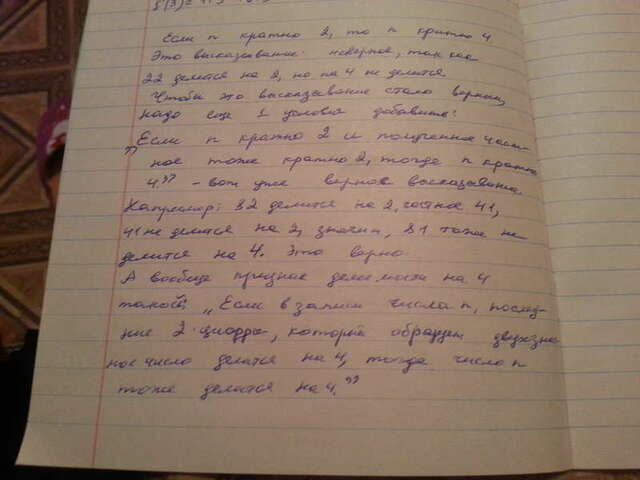 Если n кратно 2, то n кратно 4.
Это высказывание неверное, так как
22 делится на 2, но на 4 не делится.
Чтобы это высказывание стало верным,
надо еще 1 условия добавить:
„Если n кратно 2 и полученное част-
ное тоже кратно 2, тогда n кратно
4." - вот уже верное высказывание.
Например: 82 делится на 2, частное 41,
41 не делится на 2, значит, 81 тоже не
делится на 4. Это верно.
А вообще признак делимости на 4
такой: „Если в записи числа n, послед-
ние 2 цифры, которые образуют двухзнач
ное число делятся на 4, тогда число n
тоже делится на 4."